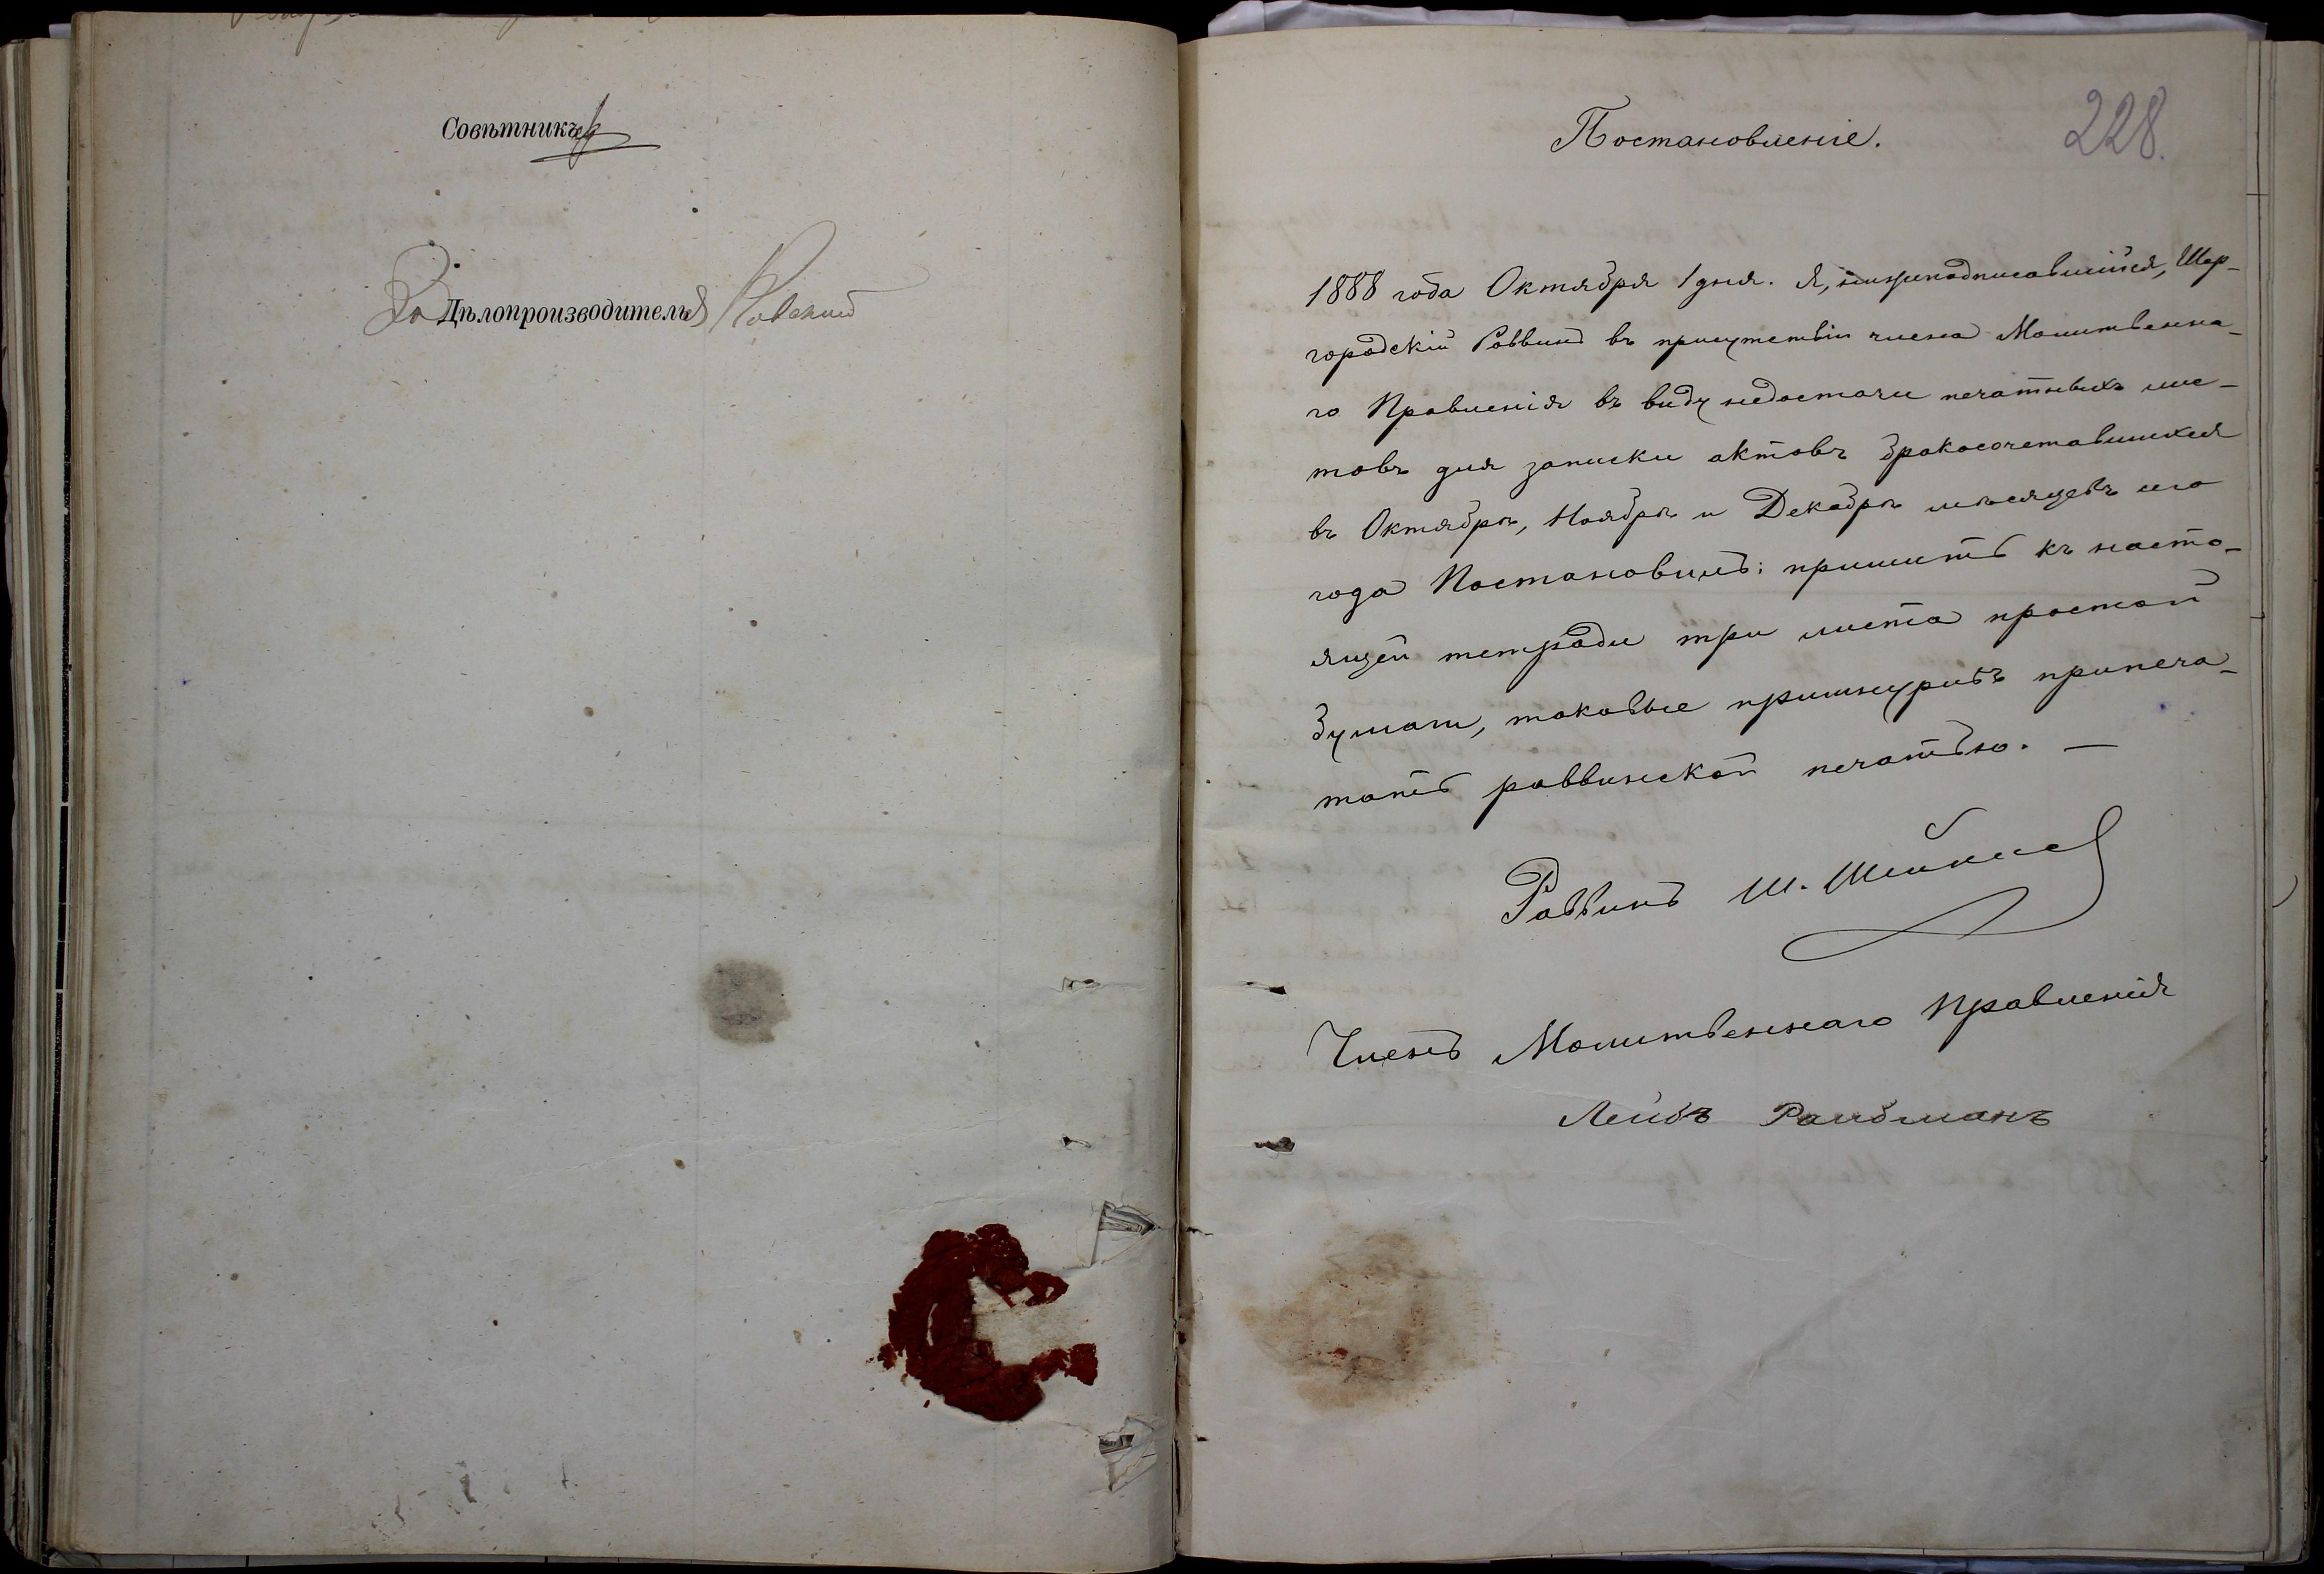 Совѣтникъ
За Дѣлопроизводителя
228.
Постановленіе.
1888 года Октября 1 дня. Я, нижеподписавшійся, Шар-
городскій Раввинъ въ присутствіи члена Молитвенна-
го Правленія въ виду недостачи печатныхъ лис-
товъ для записки актовъ бракосочетавшихся
въ Октябрѣ, Ноябрѣ и Декабрѣ мѣсяцевъ сего
года Постановилъ: пришить къ насто-
ящей тетради три листа простой
бумаги, таковые пришнуривъ припеча-
тать раввинской печатью. —
Раввинъ Ш.
Членъ Молитвеннаго Правленія
Лейбъ Ройбманъ